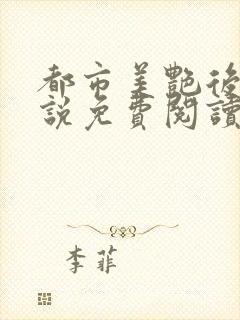 都市美艷後
說免費閱讀
李菲